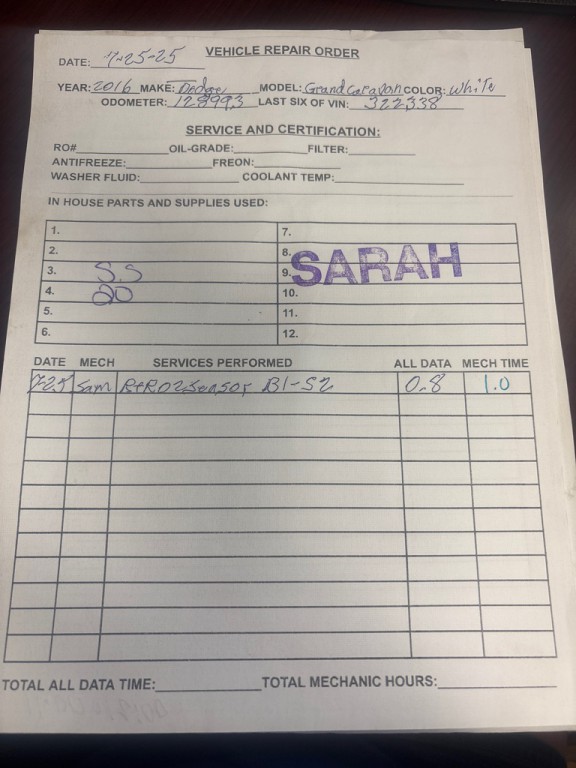 VEHICLE REPAIR ORDER
DATE: 7-25-25
YEAR: 2016 MAKE: Dodge MODEL: Grand Caravan COLOR: White
ODOMETER: 128993 LAST SIX OF VIN: 322338
SERVICE AND CERTIFICATION:
RO# OIL-GRADE: FILTER:
ANTIFREEZE: FREON:
WASHER FLUID: COOLANT TEMP:
IN HOUSE PARTS AND SUPPLIES USED:
1. 7.
2. 8.
3. S.S 9. SARAH
4. 20 10.
5. 11.
6. 12.
DATE MECH SERVICES PERFORMED ALL DATA MECH TIME
7-25 Sam R+R O2 Sensor B1-S2 0.8 1.0
TOTAL ALL DATA TIME: TOTAL MECHANIC HOURS: